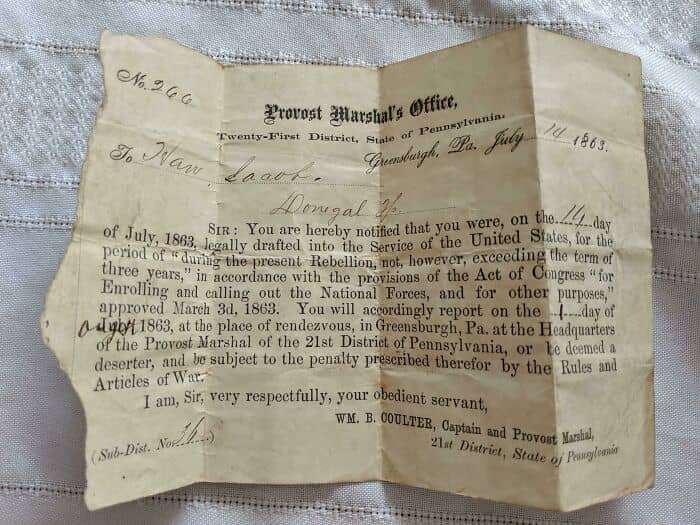 No. 266
Provost Marshal's Office,
Twenty-First District, State of Pennsylvania.
Greensburgh, Pa. July 14 1863.
To Haw, Jacob.
Donegal Tp
SIR: You are hereby notified that you were, on the 14 day
of July, 1863, legally drafted into the Service of the United States, for the
period of "during the present Rebellion, not, however, exceeding the term of
three years," in accordance with the provisions of the Act of Congress "for
Enrolling and calling out the National Forces, and for other purposes,"
approved March 3d, 1863. You will accordingly report on the 1 day of
1863, at the place of rendezvous, in Greensburgh, Pa. at the Headquarters
of the Provost Marshal of the 21st District of Pennsylvania, or be deemed a
deserter, and be subject to the penalty prescribed therefor by the Rules and
Articles of War.
I am, Sir, very respectfully, your obedient servant,
WM. B. COULTER, Captain and Provost Marshal,
21st District, State of Pennsylvania
(Sub-Dist. No. )